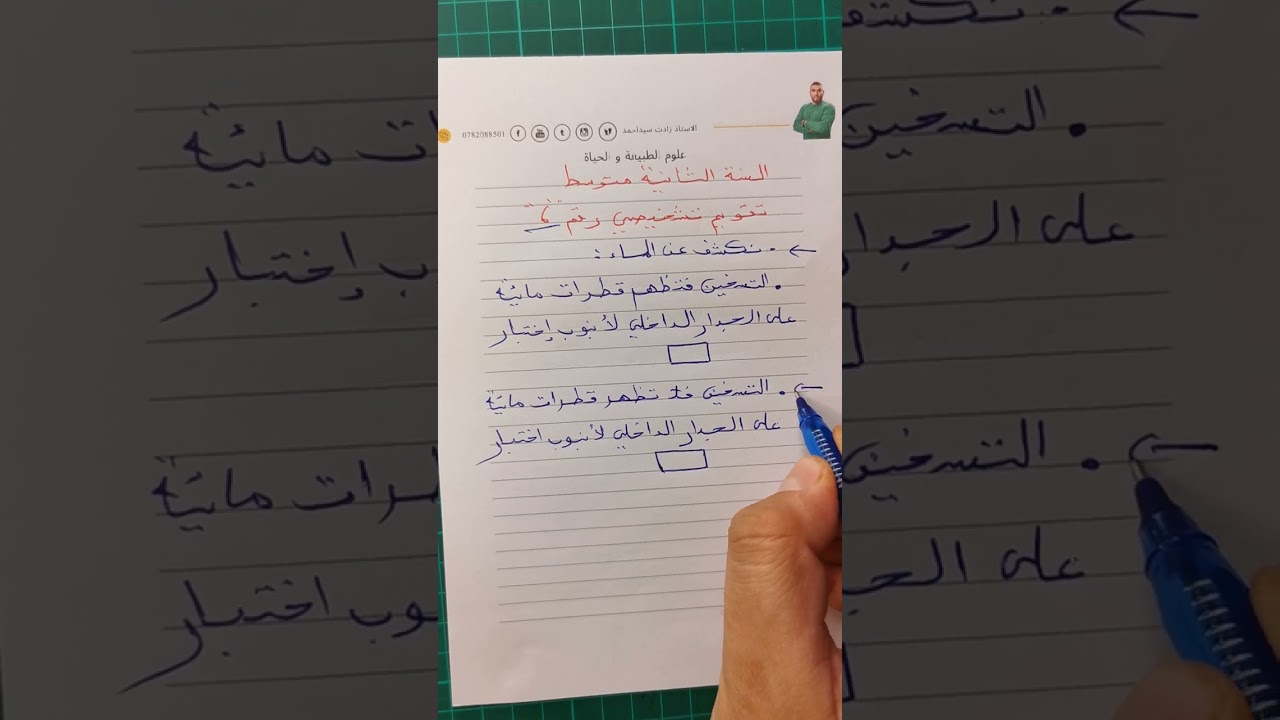 الاستاذ زادت سيداحمد
0782088501
علوم الطبيعة و الحياة
السنة الثانية متوسط
تقويم تشخيصي رقم "6"
← - نكشف عن الماء :
. التسخين فتظهر قطرات مائية
على الجدار الداخلي لأنبوب إختبار
← . التسخين فلا تظهر قطرات مائية
على الجدار الداخلي لأنبوب اختبار